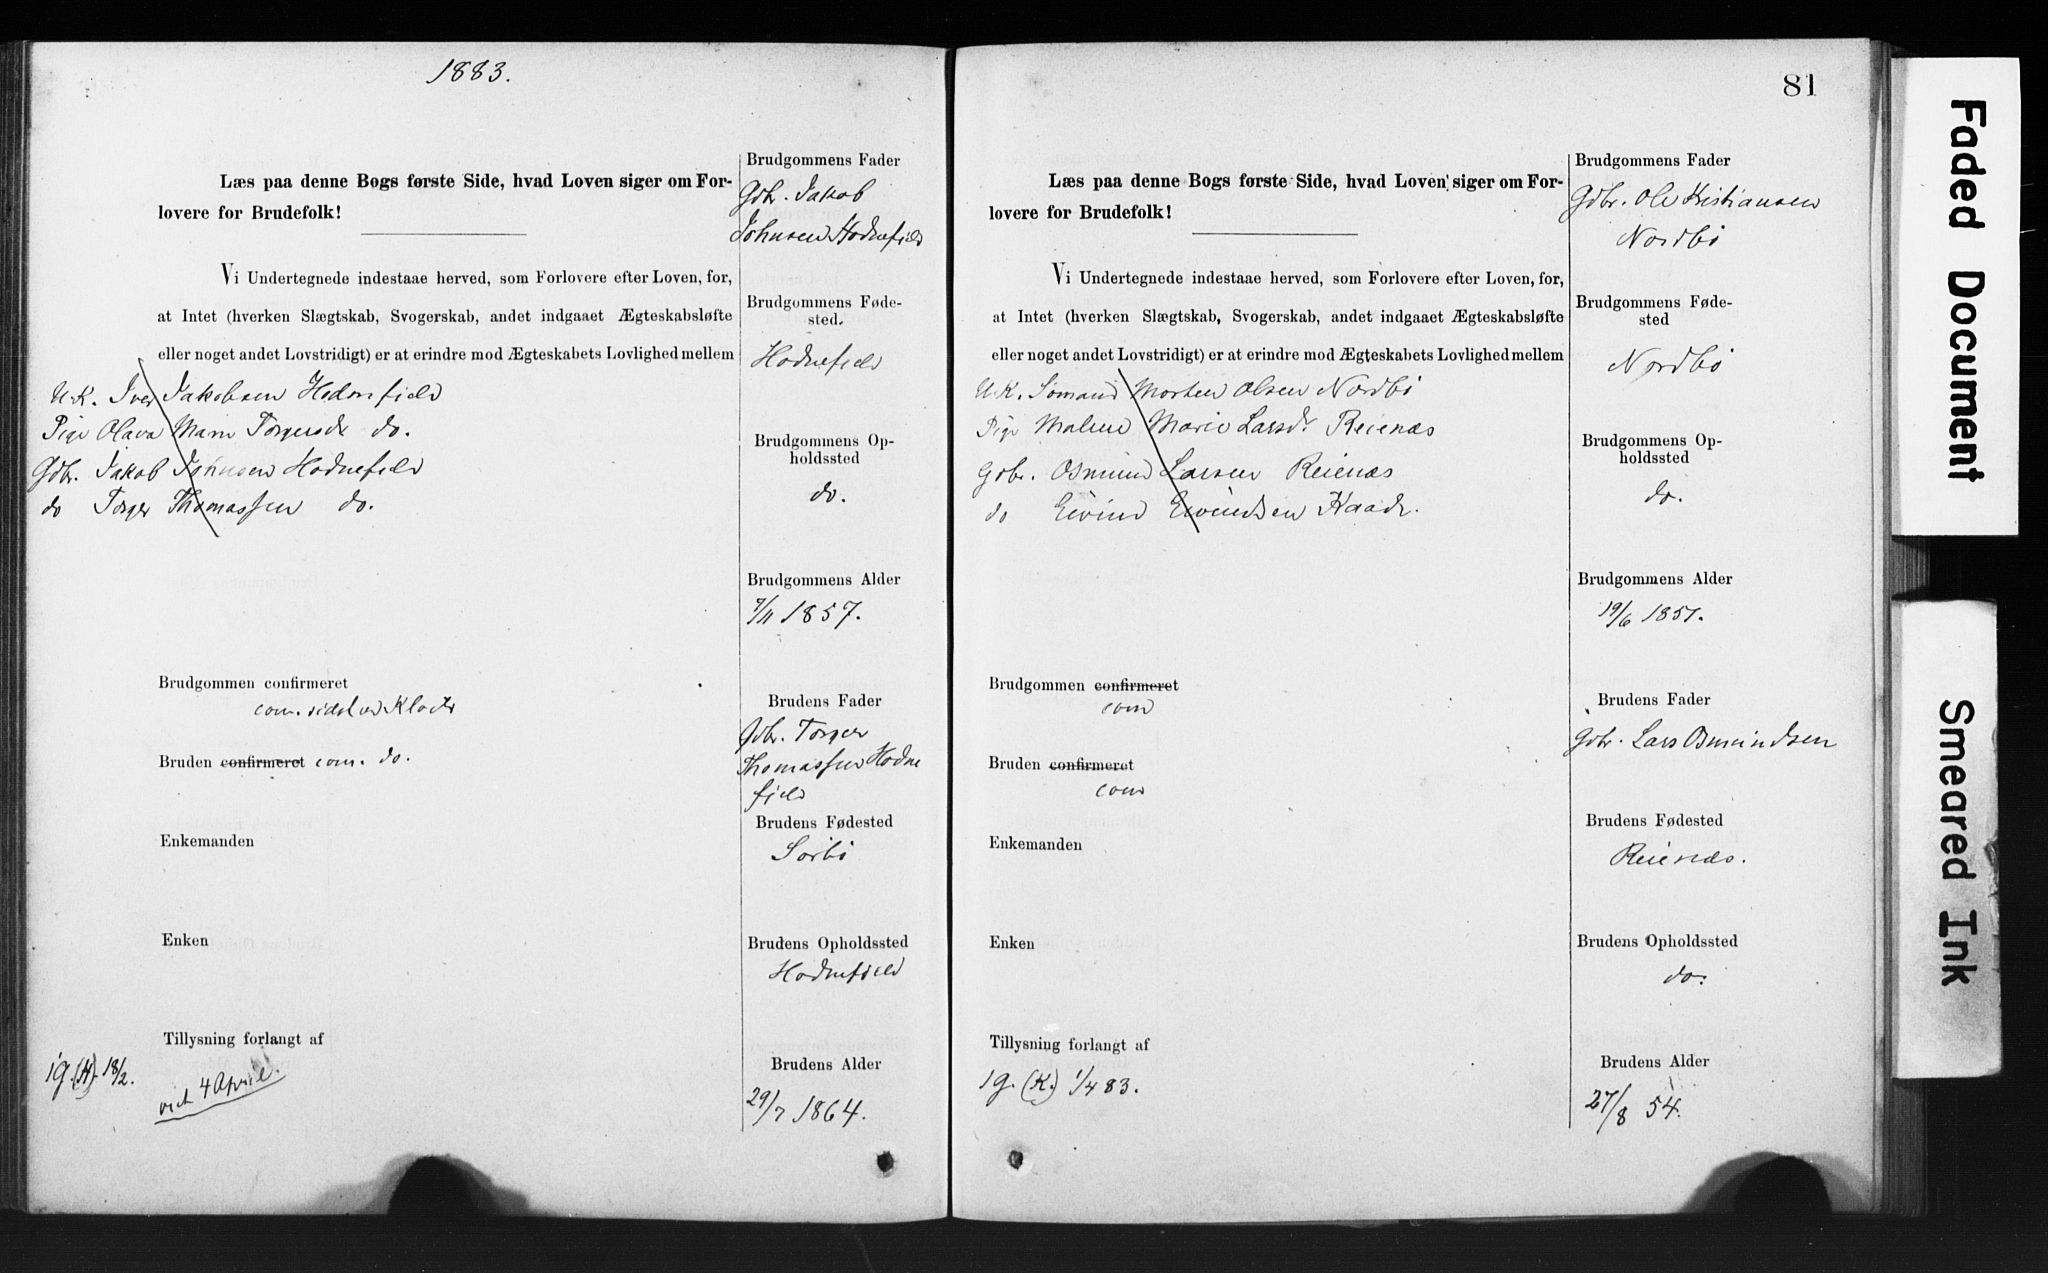 1883.
Læs paa denne Bogs første Side, hvad Loven siger om For-
lovere for Brudefolk!
Vi Undertegnede indestaae herved, som Forlovere efter Loven, for,
at Intet (hverken Slægtskab, Svogerskab, andet indgaaet Ægteskabsløfte
eller noget andet Lovstridigt) er at erindre mod Ægteskabets Lovlighed mellem
U.K. Iver Jakobsen Hodnefjeld
Pige Olava Marie Torgersdr do.
Gdbr. Jakob Johnsen Hodnefjeld
do Torger Thomassen do.
Brudgommen confirmeret
com. sidst ved Kloster
Bruden confirmeret com. do.
Enkemanden
Enken
Tillysning forlangt af
1g. (K). 18/2.
viet 4 April.
Brudgommens Fader
Gdbr. Jakob
Johnsen Hodnefjeld
Brudgommens Føde-
sted.
Hodnefjeld
Brudgommens Op-
holdssted
do.
Brudgommens Alder
7/11 1857.
Brudens Fader
Gdbr. Torger
Thomassen Hodne
fjeld
Brudens Fødested
Sørbø
Brudens Opholdssted
Hodnefjeld
Brudens Alder
29/7 1864.
81
Læs paa denne Bogs første Side, hvad Loven siger om For-
lovere for Brudefolk!
Vi Undertegnede indestaae herved, som Forlovere efter Loven, for,
at Intet (hverken Slægtskab, Svogerskab, andet indgaaet Ægteskabsløfte
eller noget andet Lovstridigt) er at erindre mod Ægteskabets Lovlighed mellem
U.K. Sømand Morten Olsen Nordbø
Pige Malene Marie Larsdr Reienæs
Gdbr. Osmund Larsen Reienæs
do Eivind Eivindsen Haade.
Brudgommen confirmeret
com
Bruden confirmeret
com
Enkemanden
Enken
Tillysning forlangt af
1g. (K.) 1/4 83.
Brudgommens Fader
Gdbr. Ole Kristiansen
Nordbø
Brudgommens Føde-
sted
Nordbø
Brudgommens Op-
holdssted
do.
Brudgommens Alder
19/6 1851.
Brudens Fader
Gdbr. Lars Osmundsen
Brudens Fødested
Reienæs.
Brudens Opholdssted
do.
Brudens Alder
27/8 54.
Faded Document
Smeared Ink